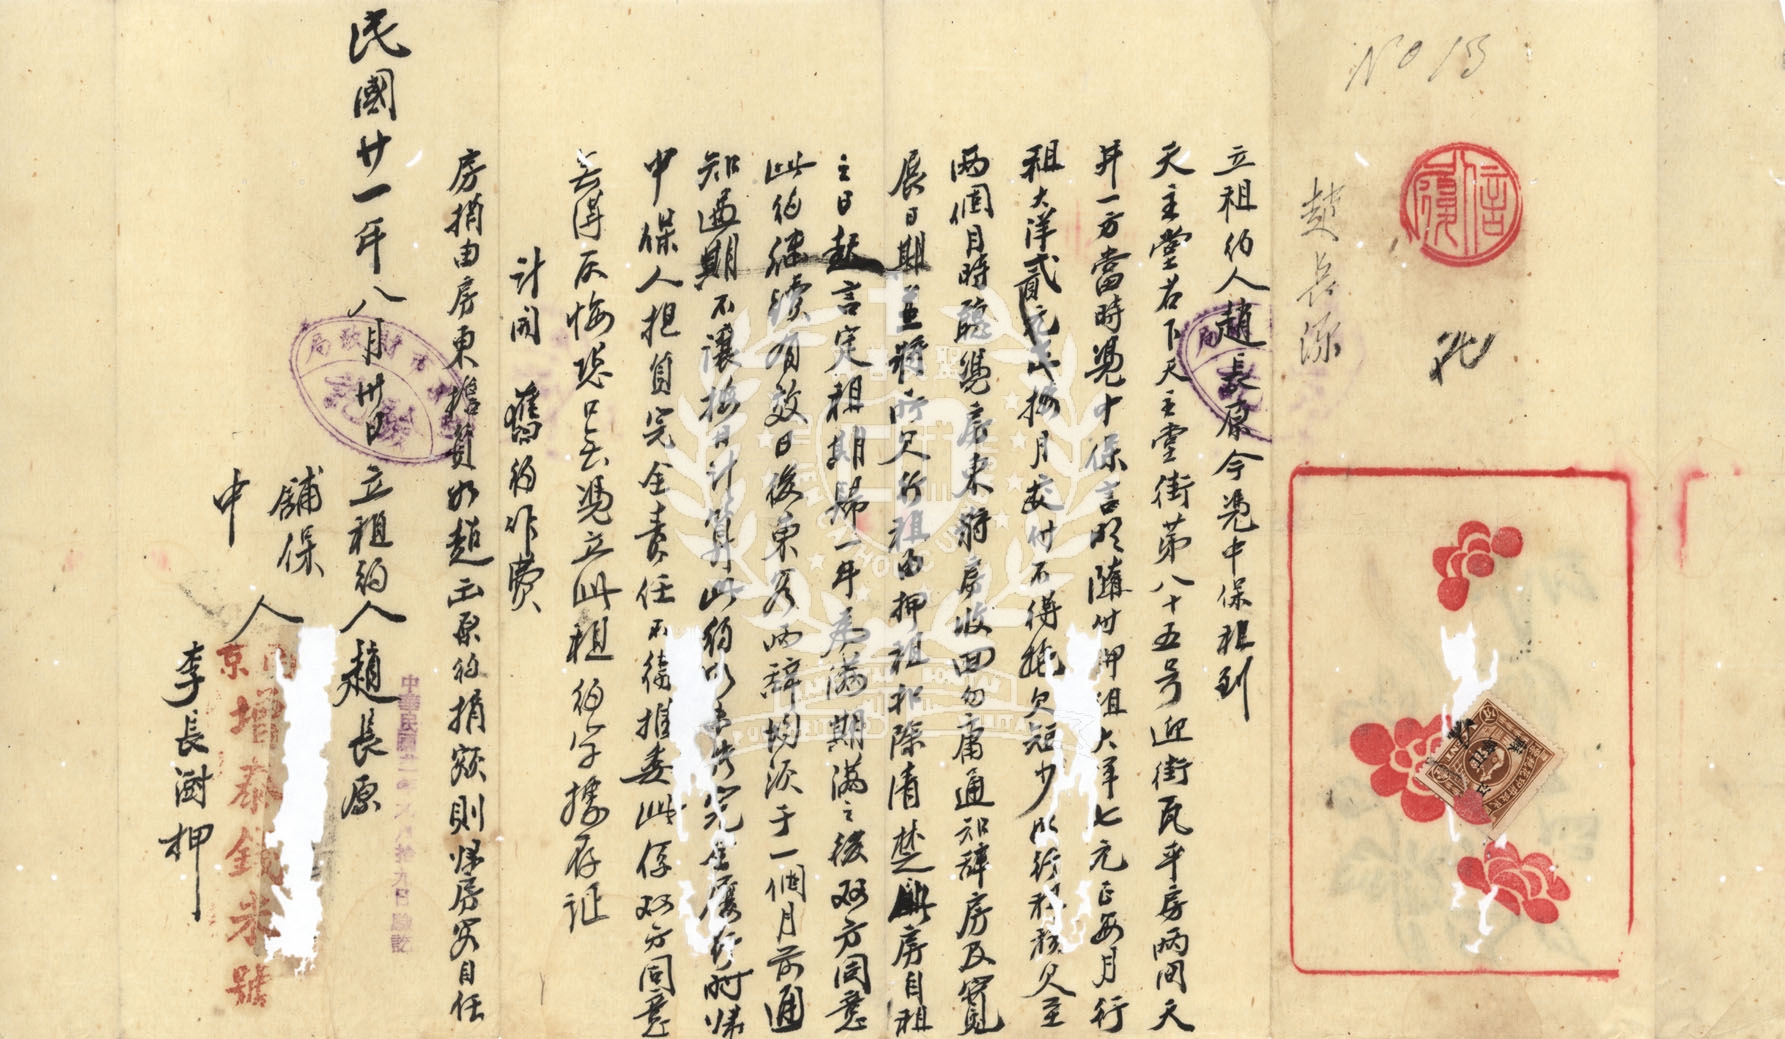 No 13
信
趙長源
立租約人趙長原今憑中保租到
天主堂名下天主堂街第八十五号迎街瓦平房兩間天
井一方當時憑中保言明隨付押租大洋七元正每月行
租大洋貳元正按月交付不得拖欠短少如行租積欠至
兩個月時聽憑房東將房收回勿庸通知辞房及寬
展日期並將所欠行租由押租扣除清楚此房自租
之日起言定租期歸一年為滿期滿之後双方同意
此約继續有效日後東客兩辞均須于一個月前通
知過期不讓按日計算此約以未失完全履行时归
中保人担負完全責任不得推委此係双方同意
各得反悔恐口無憑立此租約字據存証
計開 舊約作費
房捐由房東擔負如趙出原約捐额則归房客自任
民國廿一年八月卅日 立租約人趙長原
鋪保
京 增泰 米號
中人 李長澍押
中華民國廿二年 月拾九日驗訖
財政局